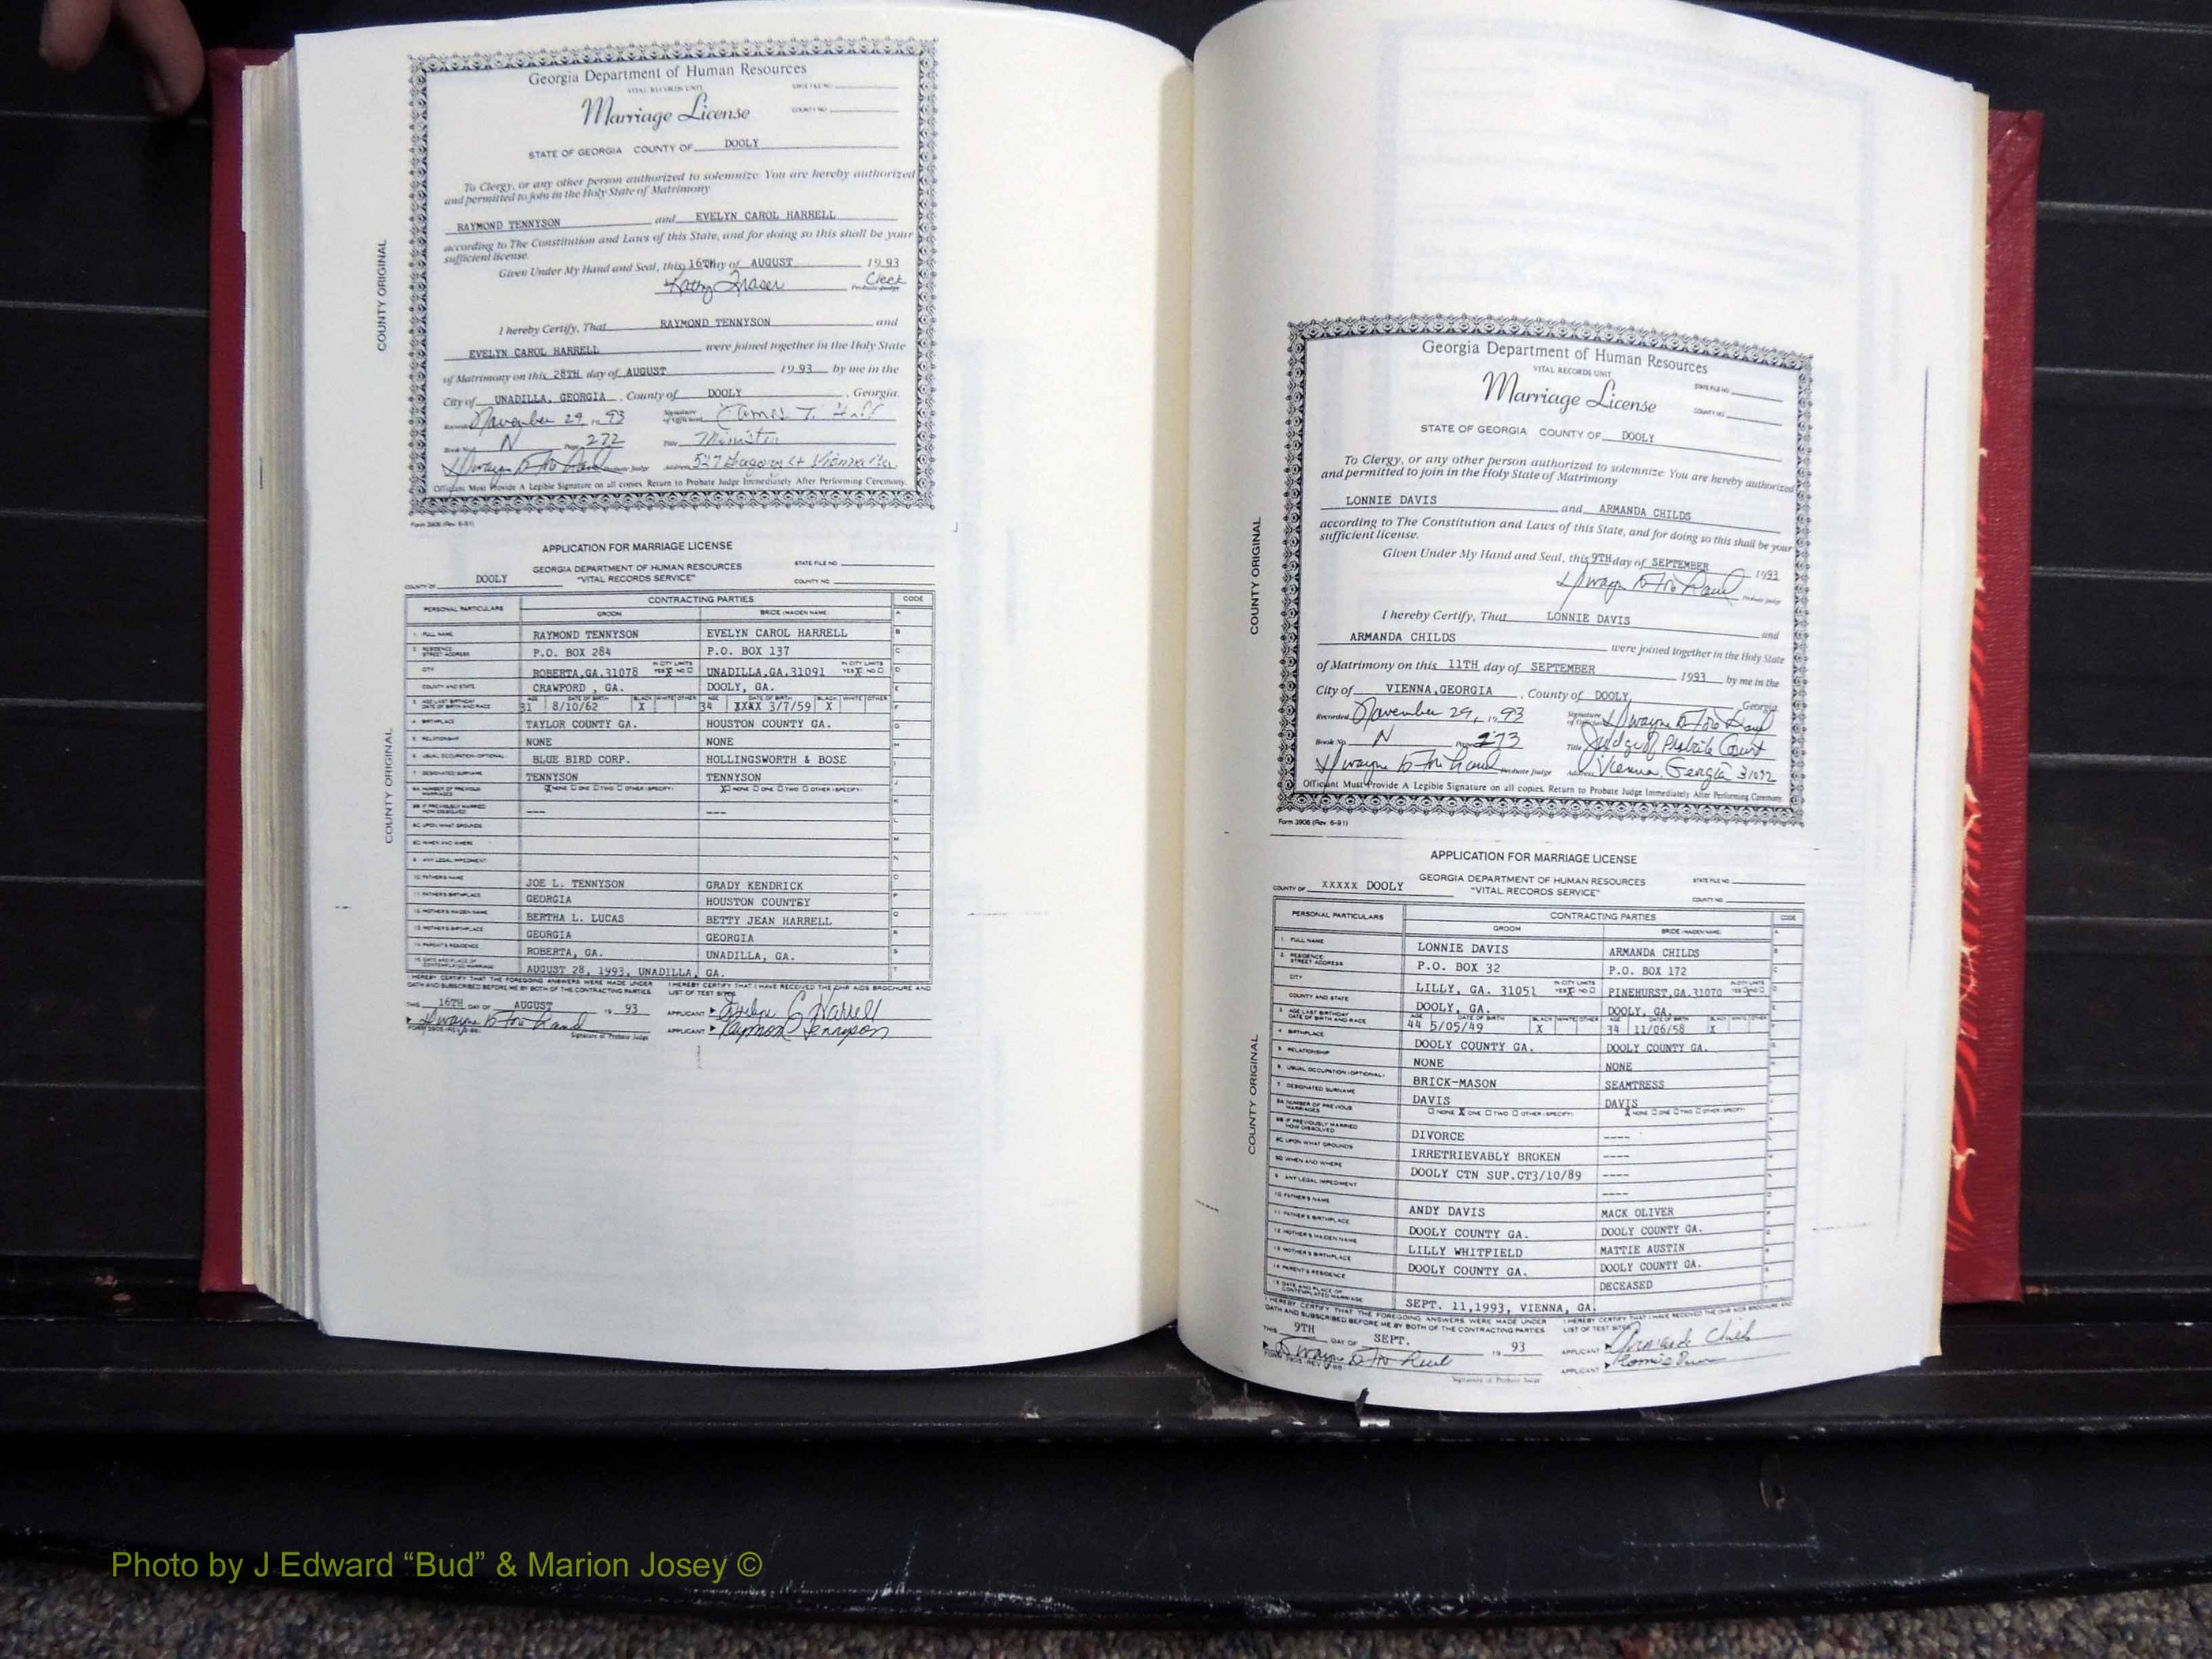 Georgia Department of Human Resources
VITAL RECORDS UNIT
STATE FILE NO.
Marriage License
COUNTY NO.
STATE OF GEORGIA COUNTY OF DOOLY
To Clergy, or any other person authorized to solemnize: You are hereby authorized
and permitted to join in the Holy State of Matrimony
RAYMOND TENNYSON and EVELYN CAROL HARRELL
according to The Constitution and Laws of this State, and for doing so this shall be your
sufficient license.
Given Under My Hand and Seal, this 16TH day of AUGUST 1993
Kathy Fraser Clerk
Probate Judge
I hereby Certify, That RAYMOND TENNYSON and
EVELYN CAROL HARRELL were joined together in the Holy State
of Matrimony on this 28TH day of AUGUST 1993 by me in the
City of UNADILLA, GEORGIA, County of DOOLY, Georgia.
Recorded November 29, 1993 Signature of Official James T.
Book No. N Page 272 Title Minister
Probate Judge Address 527 St Vienna Ga
Officiant Must Provide A Legible Signature on all copies. Return to Probate Judge Immediately After Performing Ceremony.
Form 3906 (Rev. 6-91)
COUNTY ORIGINAL
APPLICATION FOR MARRIAGE LICENSE
GEORGIA DEPARTMENT OF HUMAN RESOURCES STATE FILE NO.
COUNTY OF DOOLY "VITAL RECORDS SERVICE" COUNTY NO.
PERSONAL PARTICULARS CONTRACTING PARTIES CODE
GROOM BRIDE (MAIDEN NAME)
1. FULL NAME RAYMOND TENNYSON EVELYN CAROL HARRELL
2. RESIDENCE STREET ADDRESS P.O. BOX 284 P.O. BOX 137
CITY ROBERTA,GA.31078 IN CITY LIMITS YES X NO UNADILLA,GA.31091 IN CITY LIMITS YES X NO
COUNTY AND STATE CRAWFORD , GA. DOOLY, GA.
3. AGE LAST BIRTHDAY DATE OF BIRTH AND RACE 31 8/10/62 X 34 XXXX 3/7/59 X
4. BIRTHPLACE TAYLOR COUNTY GA. HOUSTON COUNTY GA.
5. RELATIONSHIP NONE NONE
6. USUAL OCCUPATION (OPTIONAL) BLUE BIRD CORP. HOLLINGSWORTH & BOSE
7. DESIGNATED SURNAME TENNYSON TENNYSON
8A. NUMBER OF PREVIOUS MARRIAGES X NONE ONE TWO OTHER (SPECIFY) X NONE ONE TWO OTHER (SPECIFY)
8B. IF PREVIOUSLY MARRIED HOW DISSOLVED --- ---
8C. UPON WHAT GROUNDS
8D. WHEN AND WHERE
9. ANY LEGAL IMPEDIMENT
10. FATHER'S NAME JOE L. TENNYSON GRADY KENDRICK
11. FATHER'S BIRTHPLACE GEORGIA HOUSTON COUNTEY
12. MOTHER'S MAIDEN NAME BERTHA L. LUCAS BETTY JEAN HARRELL
13. MOTHER'S BIRTHPLACE GEORGIA GEORGIA
14. PARENT'S RESIDENCE ROBERTA, GA. UNADILLA, GA.
15. DATE AND PLACE OF CONTEMPLATED MARRIAGE AUGUST 28, 1993, UNADILLA, GA.
I HEREBY CERTIFY THAT THE FOREGOING ANSWERS WERE MADE UNDER OATH AND SUBSCRIBED BEFORE ME BY BOTH OF THE CONTRACTING PARTIES.
I HEREBY CERTIFY THAT I HAVE RECEIVED THE DHR AIDS BROCHURE AND LIST OF TEST SITES.
THIS 16TH DAY OF AUGUST 19 93 APPLICANT Evelyn C Harrell
Signature of Probate Judge APPLICANT Raymond Tennyson
COUNTY ORIGINAL
Georgia Department of Human Resources
VITAL RECORDS UNIT
STATE FILE NO.
Marriage License
COUNTY NO.
STATE OF GEORGIA COUNTY OF DOOLY
To Clergy, or any other person authorized to solemnize: You are hereby authorized
and permitted to join in the Holy State of Matrimony
LONNIE DAVIS and ARMANDA CHILDS
according to The Constitution and Laws of this State, and for doing so this shall be your
sufficient license.
Given Under My Hand and Seal, this 9TH day of SEPTEMBER 1993
Probate Judge
I hereby Certify, That LONNIE DAVIS and
ARMANDA CHILDS were joined together in the Holy State
of Matrimony on this 11TH day of SEPTEMBER 1993 by me in the
City of VIENNA,GEORGIA, County of DOOLY, Georgia.
Recorded November 29, 1993 Signature of Official
Book No. N Page 273 Title Judge of Probate Court
Probate Judge Address Vienna, Georgia 31092
Officiant Must Provide A Legible Signature on all copies. Return to Probate Judge Immediately After Performing Ceremony.
Form 3906 (Rev. 6-91)
COUNTY ORIGINAL
APPLICATION FOR MARRIAGE LICENSE
GEORGIA DEPARTMENT OF HUMAN RESOURCES STATE FILE NO.
COUNTY OF XXXXX DOOLY "VITAL RECORDS SERVICE" COUNTY NO.
PERSONAL PARTICULARS CONTRACTING PARTIES CODE
GROOM BRIDE (MAIDEN NAME)
1. FULL NAME LONNIE DAVIS ARMANDA CHILDS
2. RESIDENCE STREET ADDRESS P.O. BOX 32 P.O. BOX 172
CITY LILLY, GA. 31051 IN CITY LIMITS YES X NO PINEHURST,GA.31070 IN CITY LIMITS YES X NO
COUNTY AND STATE DOOLY, GA. DOOLY, GA.
3. AGE LAST BIRTHDAY DATE OF BIRTH AND RACE 44 5/05/49 X 34 11/06/58 X
4. BIRTHPLACE DOOLY COUNTY GA. DOOLY COUNTY GA.
5. RELATIONSHIP NONE NONE
6. USUAL OCCUPATION (OPTIONAL) BRICK-MASON SEAMTRESS
7. DESIGNATED SURNAME DAVIS DAVIS
8A. NUMBER OF PREVIOUS MARRIAGES NONE X ONE TWO OTHER (SPECIFY) X NONE ONE TWO OTHER (SPECIFY)
8B. IF PREVIOUSLY MARRIED HOW DISSOLVED DIVORCE ----
8C. UPON WHAT GROUNDS IRRETRIEVABLY BROKEN ----
8D. WHEN AND WHERE DOOLY CTN SUP.CT3/10/89 ----
9. ANY LEGAL IMPEDIMENT ----
10. FATHER'S NAME ANDY DAVIS MACK OLIVER
11. FATHER'S BIRTHPLACE DOOLY COUNTY GA. DOOLY COUNTY GA.
12. MOTHER'S MAIDEN NAME LILLY WHITFIELD MATTIE AUSTIN
13. MOTHER'S BIRTHPLACE DOOLY COUNTY GA. DOOLY COUNTY GA.
14. PARENT'S RESIDENCE DECEASED
15. DATE AND PLACE OF CONTEMPLATED MARRIAGE SEPT. 11,1993, VIENNA, GA.
I HEREBY CERTIFY THAT THE FOREGOING ANSWERS WERE MADE UNDER OATH AND SUBSCRIBED BEFORE ME BY BOTH OF THE CONTRACTING PARTIES
I HEREBY CERTIFY THAT I HAVE RECEIVED THE DHR AIDS BROCHURE AND LIST OF TEST SITES.
THIS 9TH DAY OF SEPT. 19 93 APPLICANT Armanda Childs
Signature of Probate Judge APPLICANT Lonnie Davis
COUNTY ORIGINAL
Photo by J Edward “Bud” & Marion Josey ©